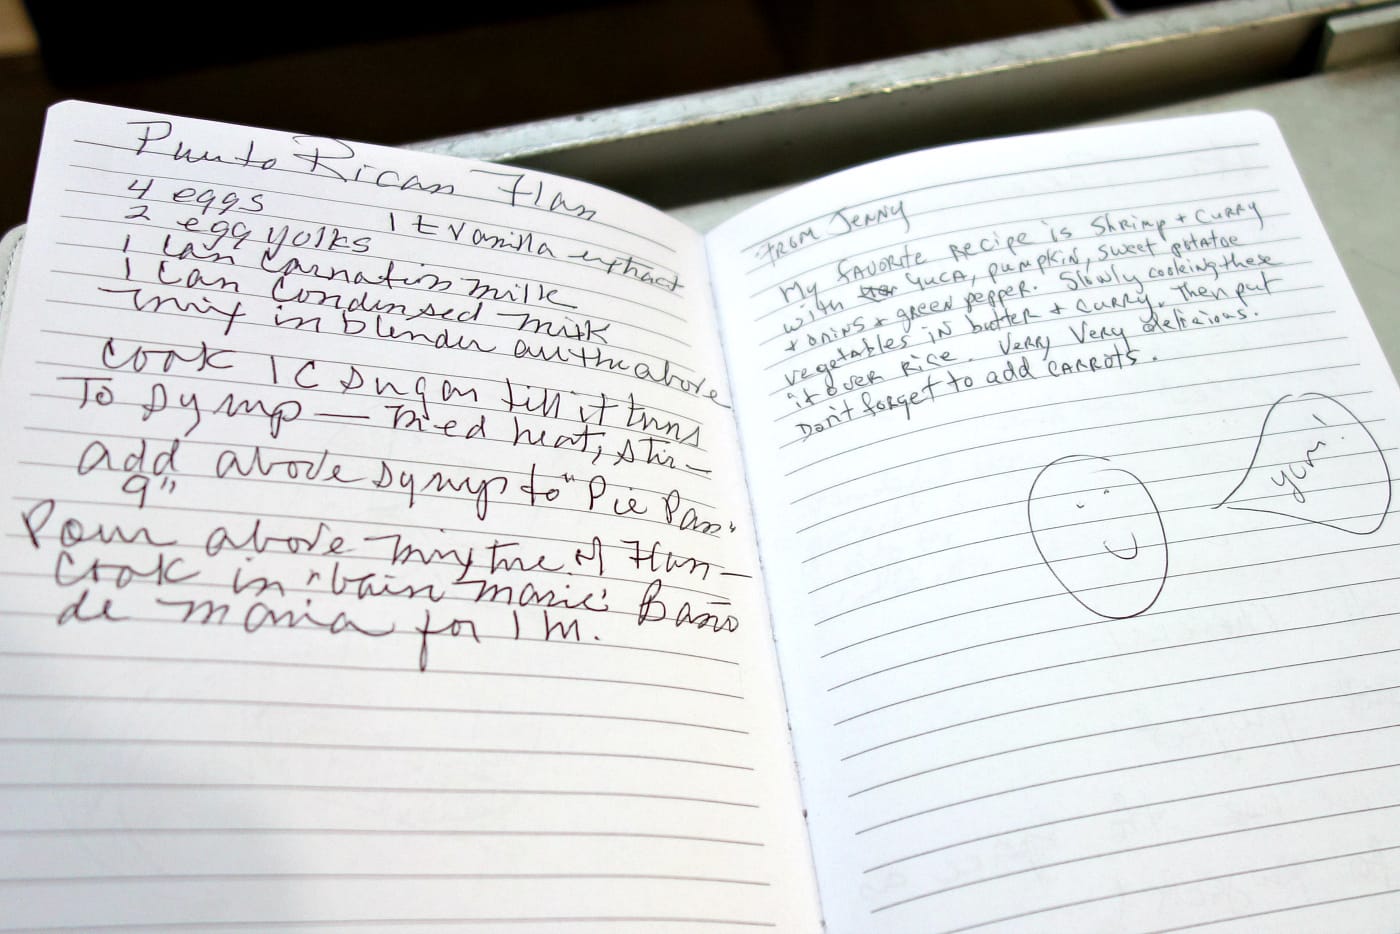 Puerto Rican Flan
4 eggs
2 egg yolks
1 t vanilla extract
1 can Carnation milk
1 can condensed milk
mix in blender all the above
Cook 1 C sugar till it turns
To syrup — Med heat, stir —
add above syrup to "Pie Pan"
9"
Pour above mixture of Flan —
Cook in "bain marie" Baño
de maria for 1 hr.
FROM JENNY
My favorite recipe is Shrimp + curry
with yuca, pumpkin, sweet potatoe
+ onins + green pepper. Slowly cooking these
vegetables in butter + curry. Then put
it over rice. Very Very delicious.
Don't forget to add carrots.
yum!